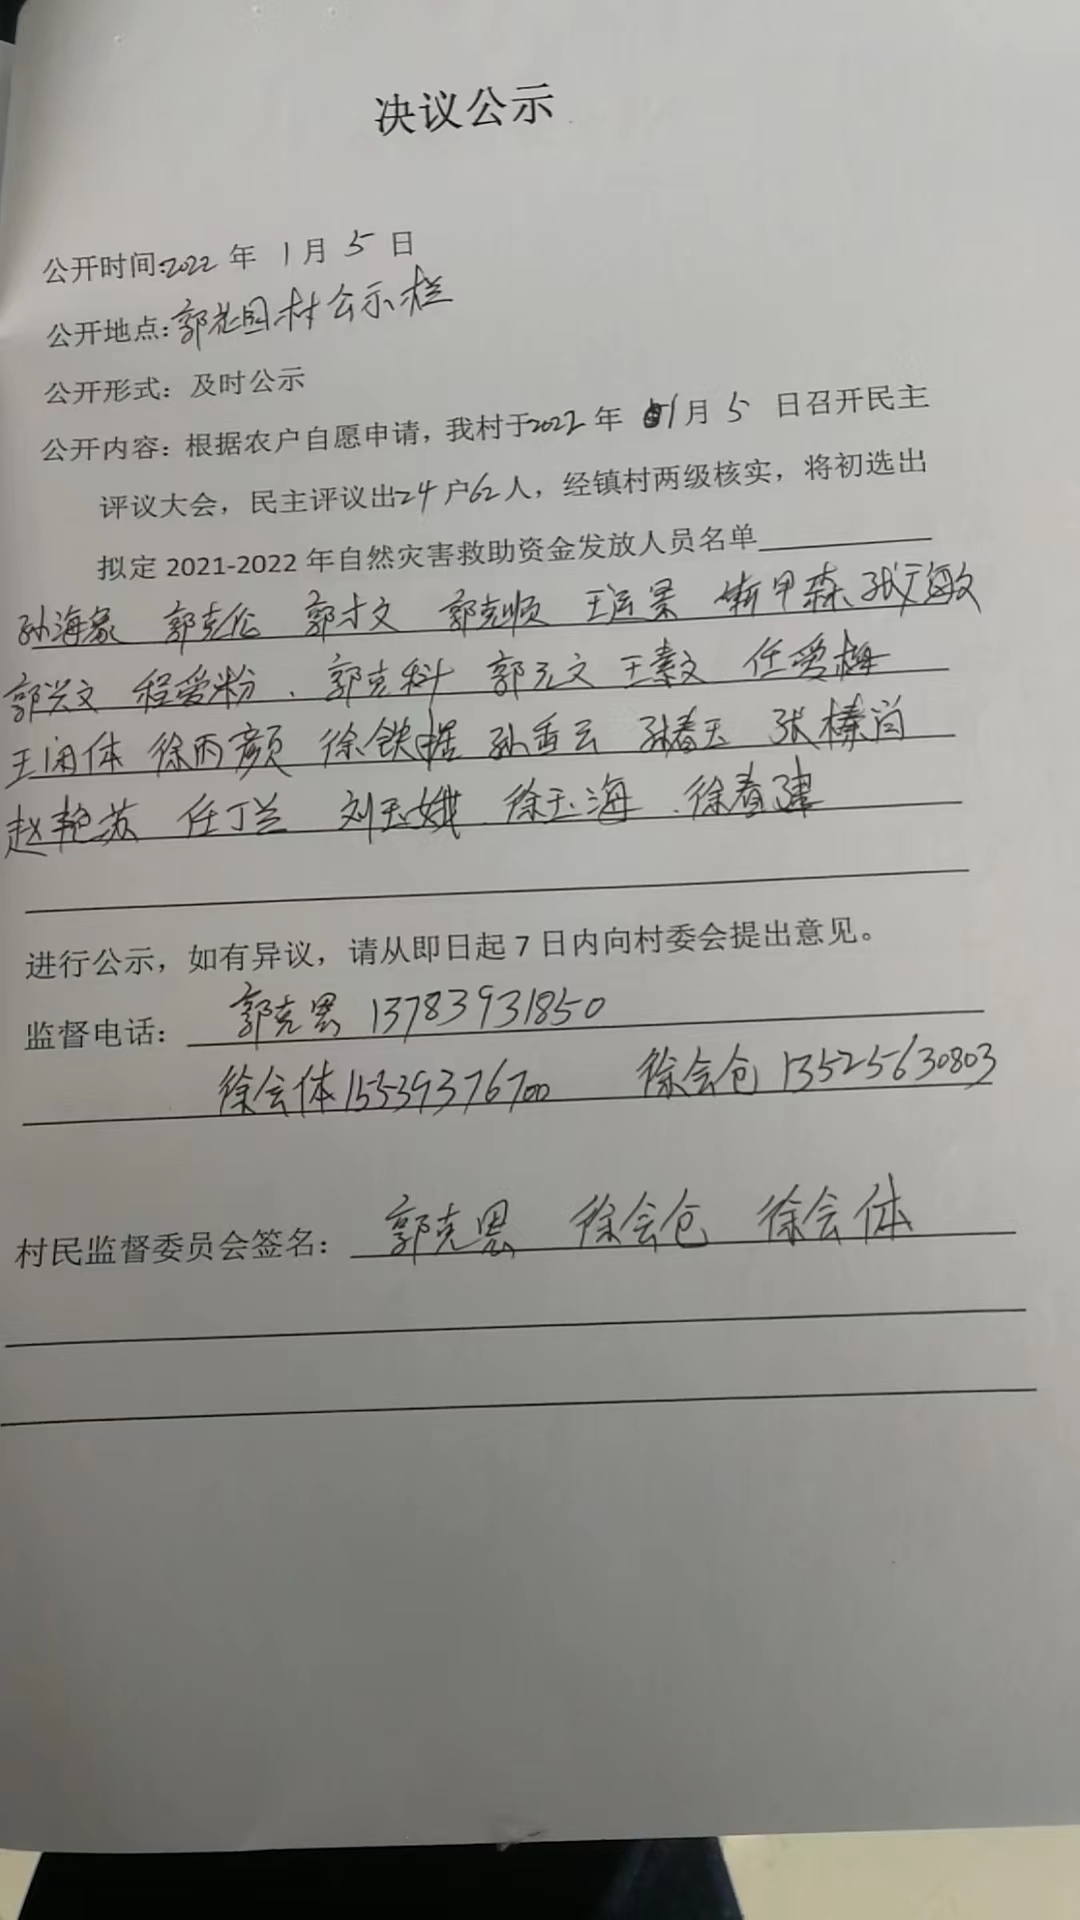 决议公示
公开时间:2022 年 1 月 5 日
公开地点:郭花园村公示栏
公开形式：及时公示
公开内容：根据农户自愿申请，我村于2022 年 1月 5 日召开民主
评议大会，民主评议出24户62人，经镇村两级核实，将初选出
拟定 2021-2022 年自然灾害救助资金发放人员名单
孙海象 郭克伦 郭才文 郭克顺 王运景 靳甲森 张广敏
郭兴文 程爱粉 郭克科 郭元文 王素文 任爱梅
王闲体 徐丙彦页 徐铁 孙香云 孙春玉 张榛肖
赵艳苏 任丁兰 刘玉娥 徐玉海 徐春建
进行公示，如有异议，请从即日起 7 日内向村委会提出意见。
监督电话： 郭克恩 13783931850
徐会体15539376700 徐会仓 13525630803
村民监督委员会签名： 郭克恩 徐会仓 徐会体